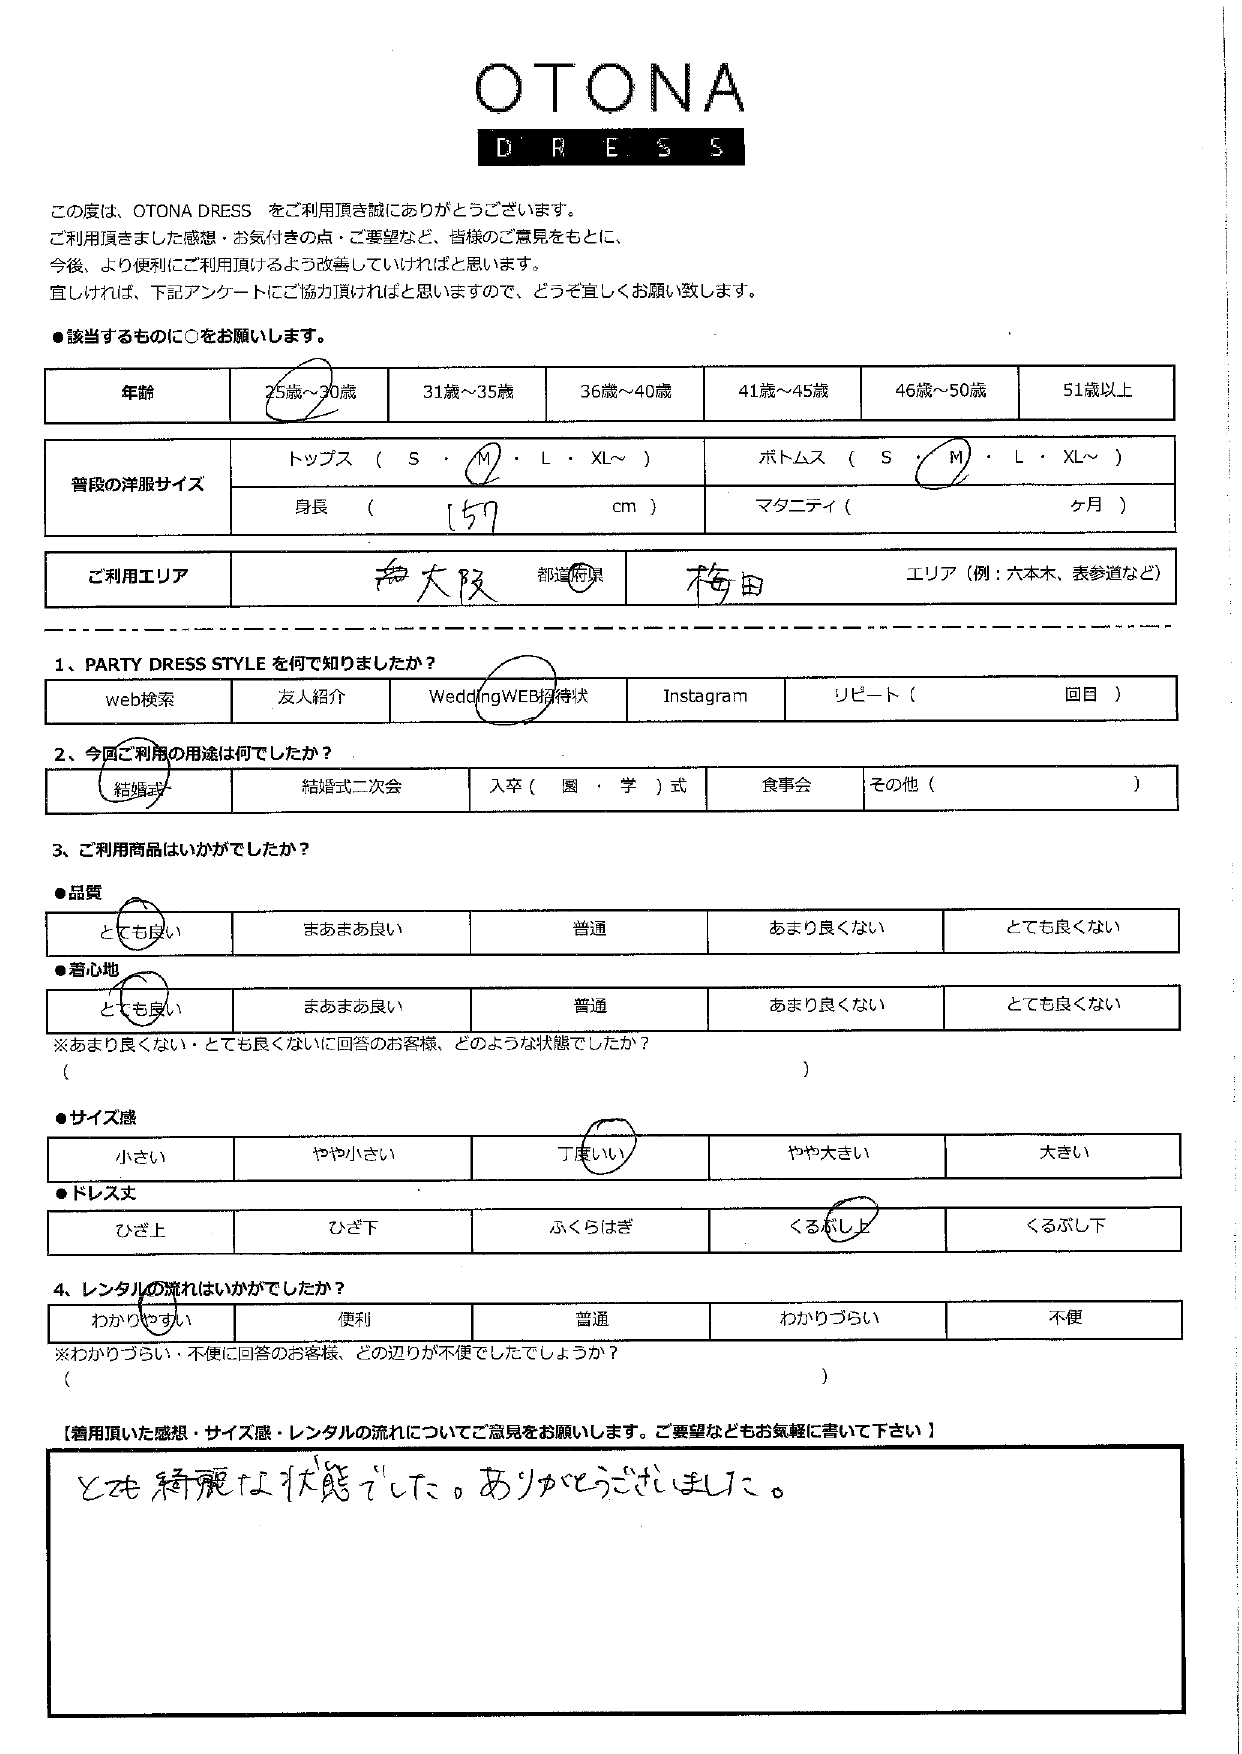 OTONA
DRESS
この度は、OTONA DRESS　をご利用頂き誠にありがとうございます。
ご利用頂きました感想・お気付きの点・ご要望など、皆様のご意見をもとに、
今後、より便利にご利用頂けるよう改善していければと思います。
宜しければ、下記アンケートにご協力頂ければと思いますので、どうぞ宜しくお願い致します。
●該当するものに○をお願いします。
年齢 25歳～30歳 31歳～35歳 36歳～40歳 41歳～45歳 46歳～50歳 51歳以上
普段の洋服サイズ
トップス （ S ・ M ・ L ・ XL～ ） ボトムス （ S ・ M ・ L ・ XL～ ）
身長 （ 157 cm ） マタニティ （ ケ月 ）
ご利用エリア 大阪 都道府県 梅田 エリア（例：六本木、表参道など）
1、PARTY DRESS STYLE を何で知りましたか？
web検索 友人紹介 WeddingWEB招待状 Instagram リピート（ 回目 ）
2、今回ご利用の用途は何でしたか？
結婚式 結婚式二次会 入卒（ 園 ・ 学 ）式 食事会 その他（ ）
3、ご利用商品はいかがでしたか？
●品質
とても良い まあまあ良い 普通 あまり良くない とても良くない
●着心地
とても良い まあまあ良い 普通 あまり良くない とても良くない
※あまり良くない・とても良くないに回答のお客様、どのような状態でしたか？
（ ）
●サイズ感
小さい やや小さい 丁度いい やや大きい 大きい
●ドレス丈
ひざ上 ひざ下 ふくらはぎ くるぶし上 くるぶし下
4、レンタルの流れはいかがでしたか？
わかりやすい 便利 普通 わかりづらい 不便
※わかりづらい・不便に回答のお客様、どの辺りが不便でしたでしょうか？
（ ）
【着用頂いた感想・サイズ感・レンタルの流れについてご意見をお願いします。ご要望などもお気軽に書いて下さい】
とても綺麗な状態でした。ありがとうございました。